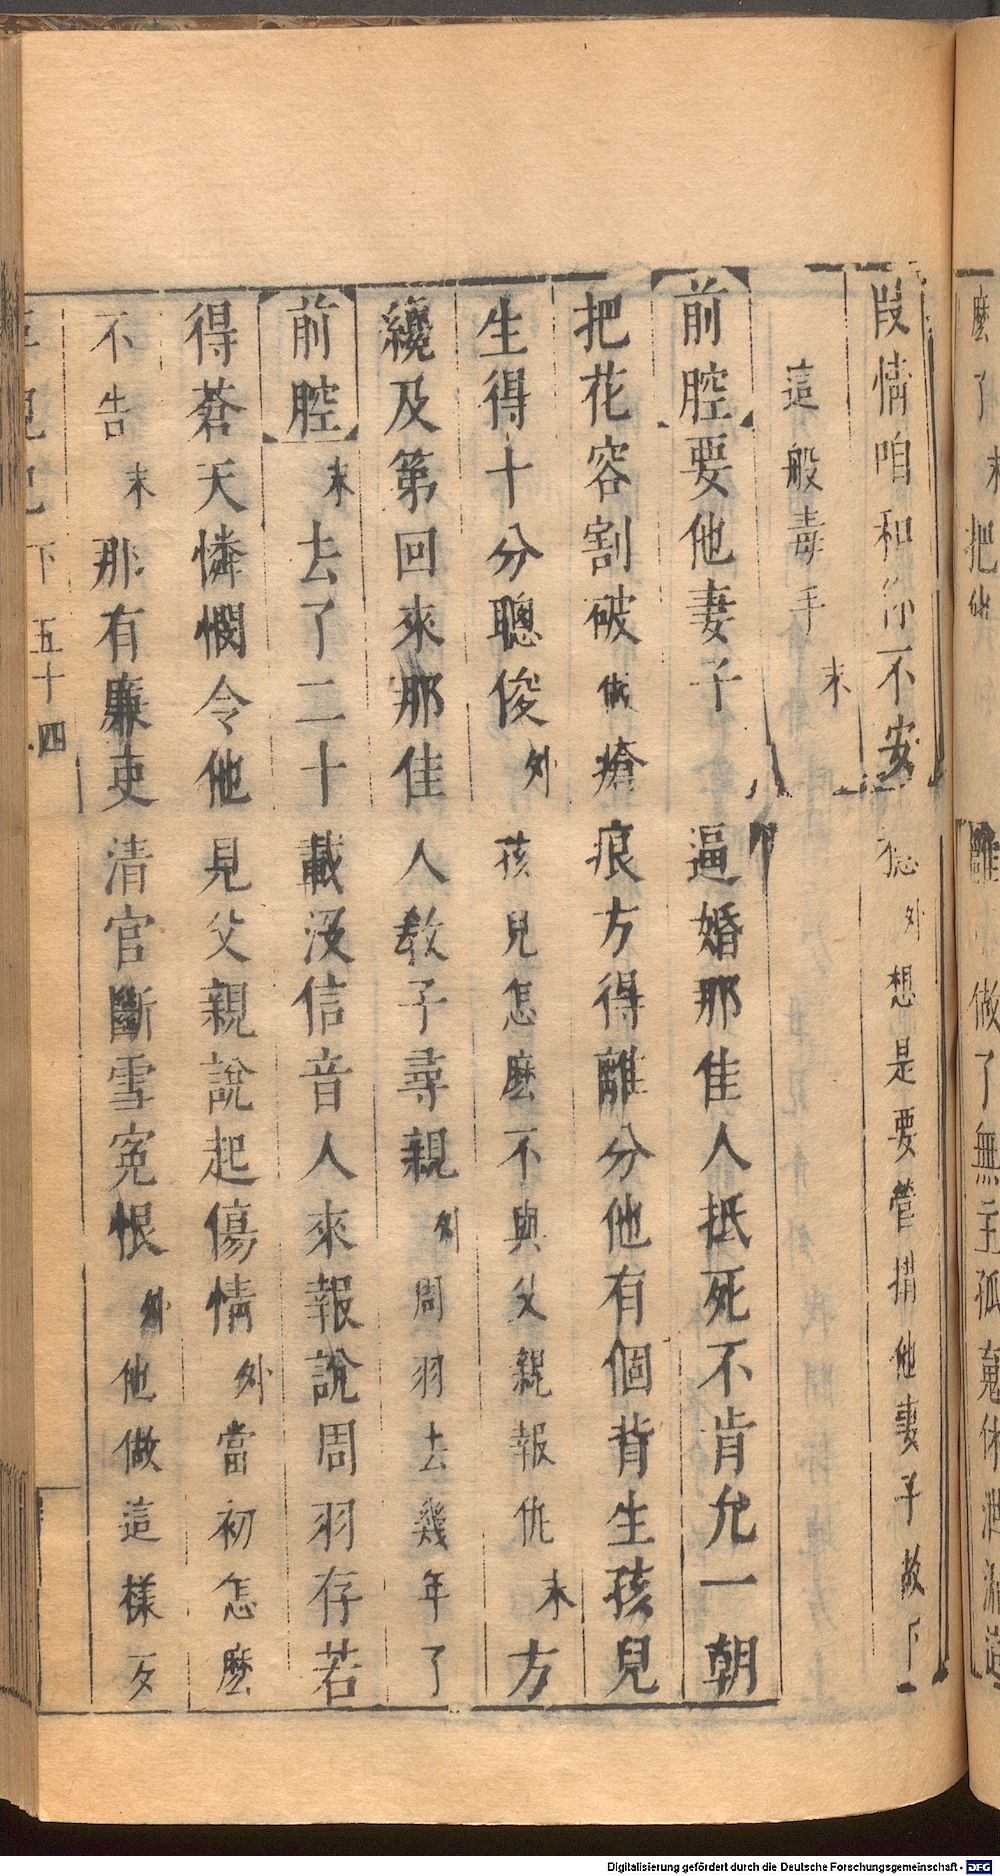 麽了末把他
離
做了無主孤
叚情咱和你不安聽外想是要營搆他妻子故下
這般毒手末
前腔要他妻子逼婚那佳人抵死不肯允一朝
把花容割破做瘡痕方得離分他有個背生孩兒
生得十分聰俊外孩兒怎麽不與父親報仇末方
纔及第回來那佳人教子尋親外周羽去幾年了
前腔末去了二十載没信音人來報說周羽存若
得蒼天憐憫令他見父親說起傷情外當初怎麽
不告末那有廉吏清官斷雪寃恨外他做這樣歹
下 五十四
Digitalisierung gefördert durch die Deutsche Forschungsgemeinschaft - DFG